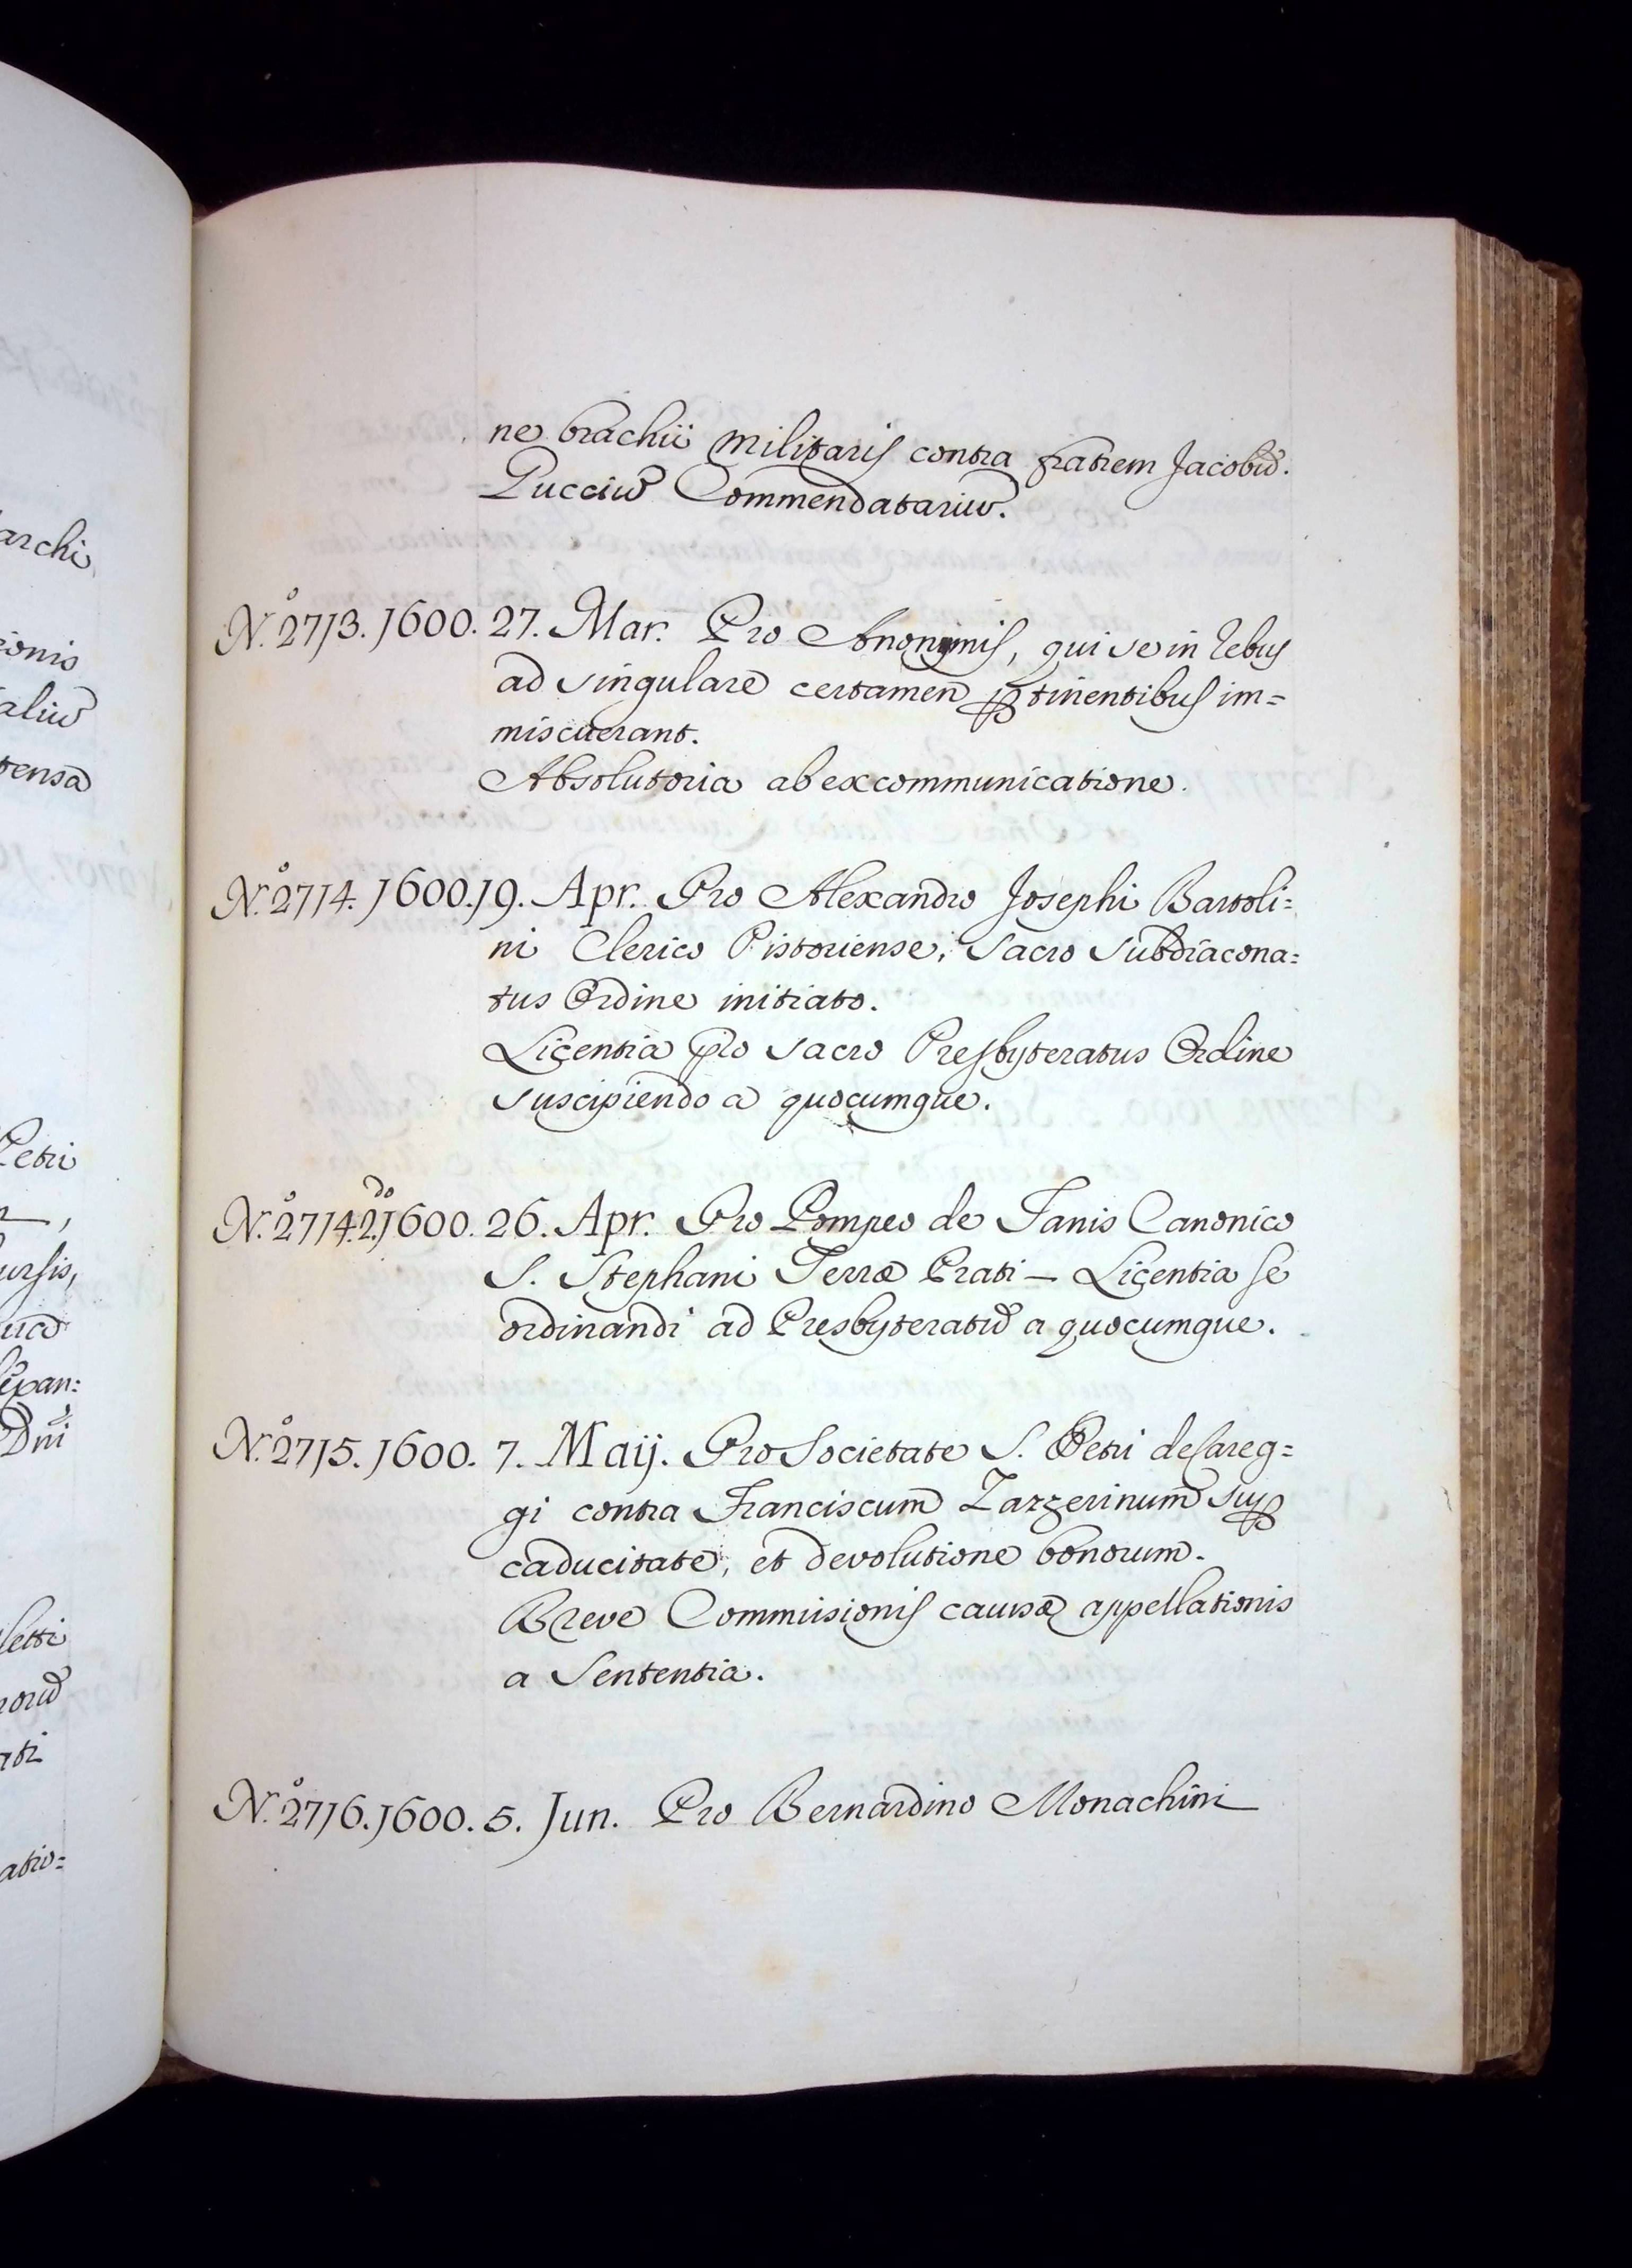 ne brachii militaris contra fratrem Jacobũ.
Pucciũ Commendatariũ.
N.º 2713. 1600. 27. Mar. Pro Anonymis, qui se in rebus
ad singulare certamen ꝑtinentibus im=
miscuerant.
Absolutoria ab excommunicatione.
N.º 2714. 1600. 19. Apr. Pro Alexandro Josephi Bartoli=
ni Clerico Pistoriense, Sacro Subdiacona=
tus Ordine initiato.
Licentia pro sacro Presbyteratus Ordine
suscipiendo a quocumque.
N.º 2714. 2.do 1600. 26. Apr. Pro Pompeo de Fanis Canonico
S. Stephani Terræ Prati — Licentia se
ordinandi ad Presbyteratũ a quocumque.
N.º 2715. 1600. 7. Maij. Pro Societate S. Petri de Careg=
gi contra Franciscum Zazzerinum suꝑ
caducitate, et devolutione bonorum.
Breve Commisionis causæ appellationis
a Sententia.
N.º 2716. 1600. 5. Jun. Pro Bernardino Monachini
archi
ionis
aliũ
tensa
Petri
ursis,
Dñi
letti
atio=